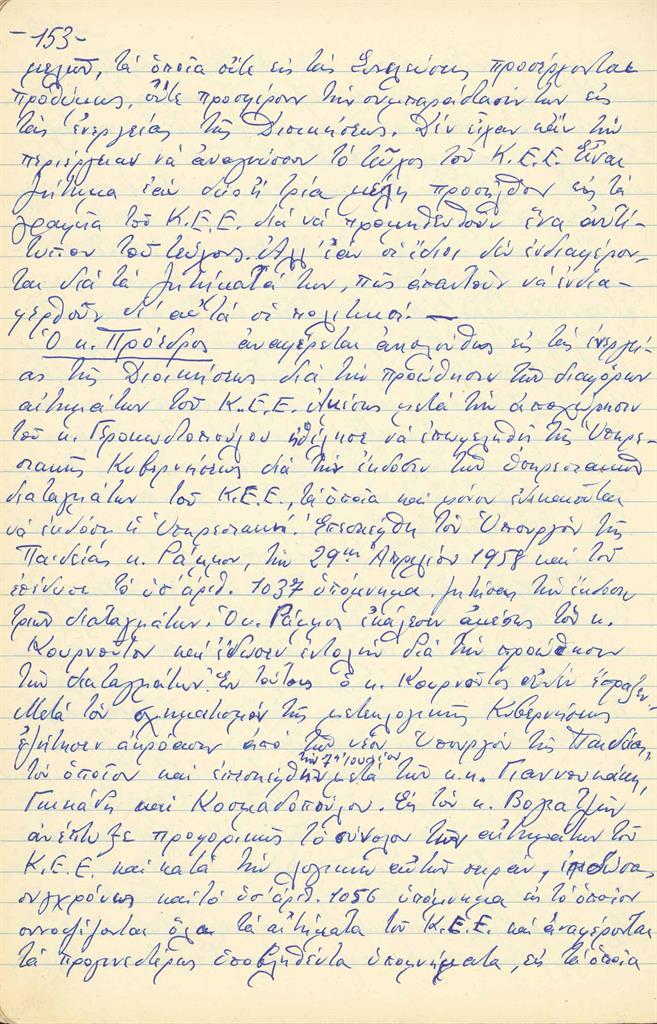 -153-
μελῶν, τὰ ὁποῖα οὔτε εἰς τὰς Συνελεύσεις προσέρχονται
προθύμως, οὔτε προσφέρουν τὴν συμπαράστασίν των εἰς
τὰς ἐνεργείας τῆς Διοικήσεως. Δὲν εἶχαν κἂν τὴν
περιέργειαν νὰ ἀναγνώσουν τὸ τεῦχος τοῦ Κ.Ε.Ε. Εἶναι
ζήτημα ἐὰν δύο ἢ τρία μέλη προσῆλθον εἰς τὰ
γραφεῖα τοῦ Κ.Ε.Ε. διὰ νὰ προμηθευθοῦν ἕνα ἀντί-
τυπον τοῦ τεύχους. Ἀλλ' ἐὰν οἱ ἴδιοι δὲν ἐνδιαφέρον-
ται διὰ τὰ ζητήματά των, πῶς ἀπαιτοῦν νὰ ἐνδια-
φερθοῦν δι' αὐτὰ οἱ πολιτικοί. —
Ὁ κ. Πρόεδρος ἀναφέρεται ἀκολούθως εἰς τὰς ἐνεργεί-
ας τῆς Διοικήσεως διὰ τὴν προώθησιν τῶν διαφόρων
αἰτημάτων τοῦ Κ.Ε.Ε. Ἀμέσως μετὰ τὴν ἀποχώρησιν
τοῦ κ. Γεροκωστοπούλου ἠθέλησε νὰ ἐπωφεληθῇ τῆς Ὑπηρε-
σιακῆς Κυβερνήσεως διὰ τὴν ἔκδοσιν τῶν ὑπηρεσιακῶν
διαταγμάτων τοῦ Κ.Ε.Ε., τὰ ὁποῖα καὶ μόνον ἐδικαιοῦται
νὰ ἐκδόσῃ ἡ Ὑπηρεσιακή. Ἐπεσκέφθη τὸν Ὑπουργὸν τῆς
Παιδείας κ. Ράμμον, τὴν 29ην Ἀπριλίου 1958 καὶ τοῦ
ἐπέδωσε τὸ ὑπ' ἀριθ. 1037 ὑπόμνημα. ζητήσας τὴν ἔκδοσιν
τριῶν διαταγμάτων. Ὁ κ. Ράμμος ἐκάλεσεν ἀμέσως τὸν κ.
Κουρνοῦτον καὶ ἔδωσεν ἐντολὴν διὰ τὴν προώθησιν
τῶν διαταγμάτων. Ἐν τούτοις ὁ κ. Κουρνοῦτος οὐδὲν ἔπραξεν.
Μετὰ τὸν σχηματισμὸν τῆς μετεκλογικῆς Κυβερνήσεως
ἐζήτησεν ἀκρόασιν ἀπὸ τὸν νέον Ὑπουργὸν τῆς Παιδείας,
τὴν 7ην Ἰουλίου
τὸν ὁποῖον καὶ ἐπεσκέφθη μετὰ τῶν κ.κ. Γιαννουκάκη,
καὶ Κοσμαδοπούλου. Εἰς τὸν κ. Βογιατζῆν
ἀνέπτυξε προφορικῶς τὸ σύνολον τῶν αἰτημάτων τοῦ
Κ.Ε.Ε. καὶ κατὰ τὴν λογικὴν αὐτῶν σειρὰν,
συγχρόνως καὶ τὸ ὑπ' ἀριθ. 1056 ὑπόμνημα εἰς τὸ ὁποῖον
συνοψίζονται ὅλα τὰ αἰτήματα τοῦ Κ.Ε.Ε. καὶ ἀναφέρονται
τὰ προγενεστέρως ὑποβληθέντα ὑπομνήματα, εἰς τὰ ὁποῖα